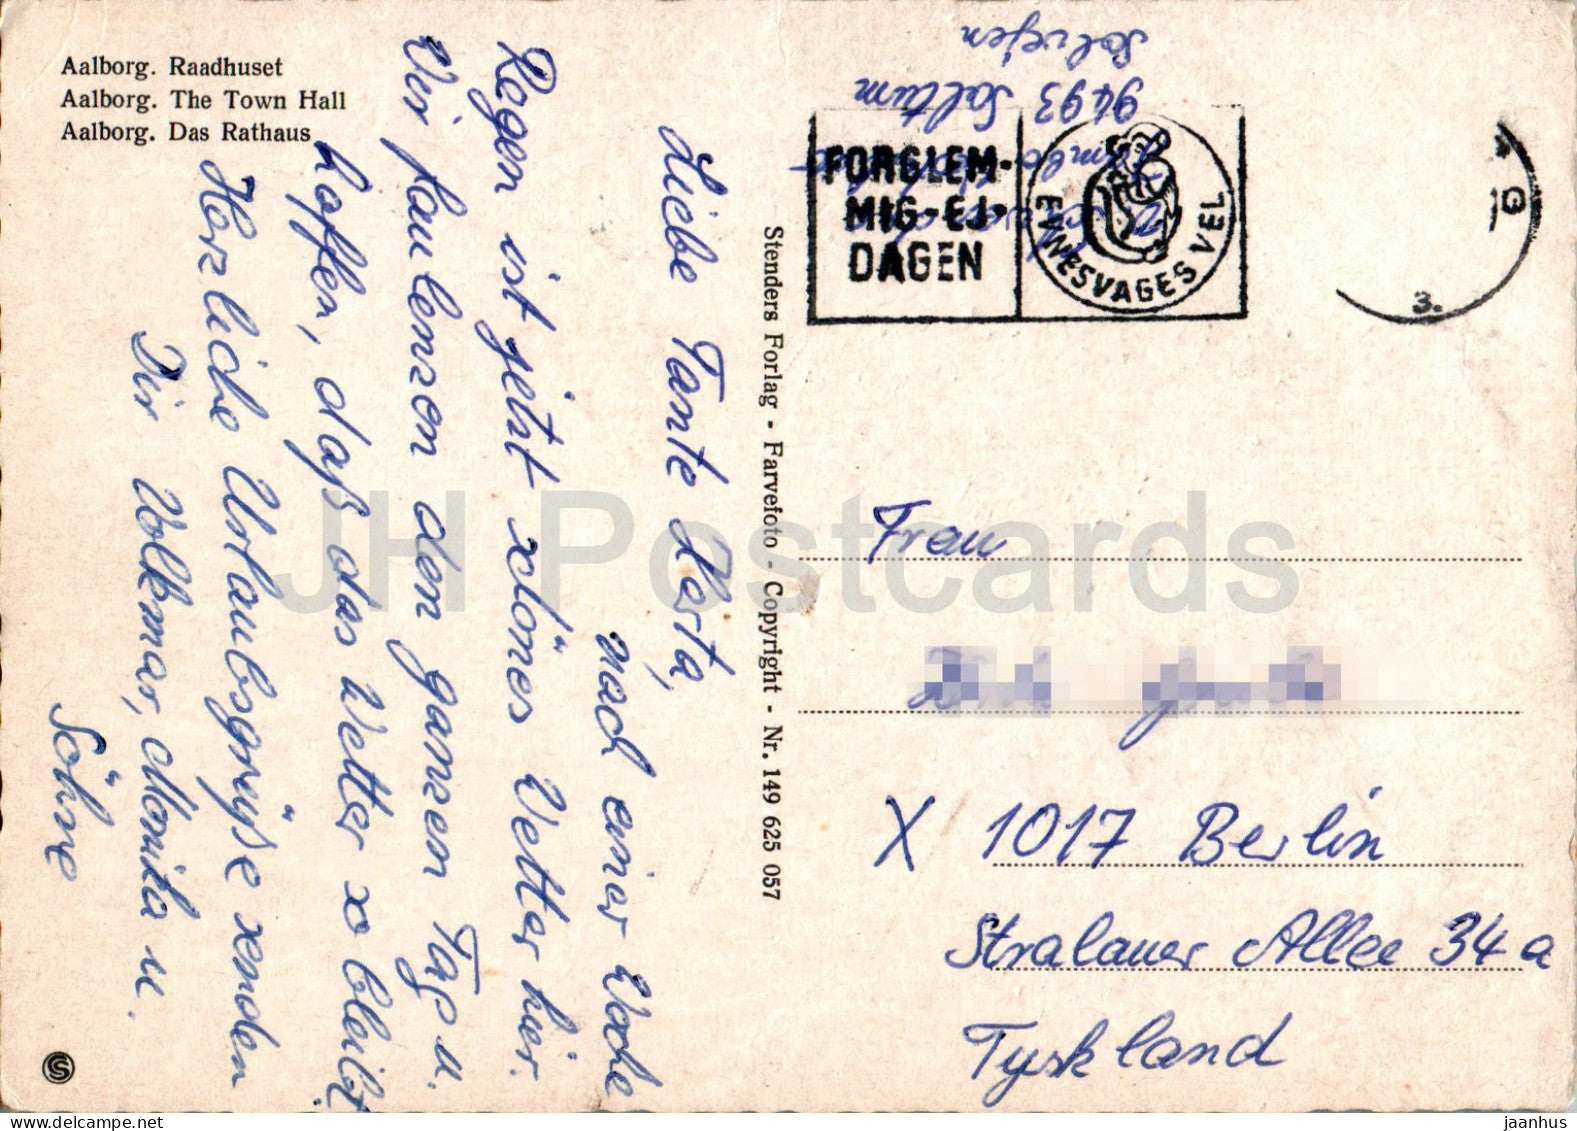 Aalborg. Raadhuset
Aalborg. The Town Hall
Aalborg. Das Rathaus
Liebe Tante Herta,
nach einer Woche
Regen ist jetzt schönes Wetter hier.
Wir faulenzen den ganzen Tag u.
hoffen, daß das Wetter so bleibt.
Herzliche Urlaubsgrüße senden
Dir Volkmar, Monika u.
Söhne
Stenders Forlag - Farvefoto - Copyright - Nr. 149 625 057
Solvejen
9493 Saltum
FORGLEM-
MIG-EJ-
DAGEN
EVNESVAGES VEL
3.
Frau
X 1017 Berlin
Stralauer Allee 34 a
Tyskland
JH Postcards
jaanhus